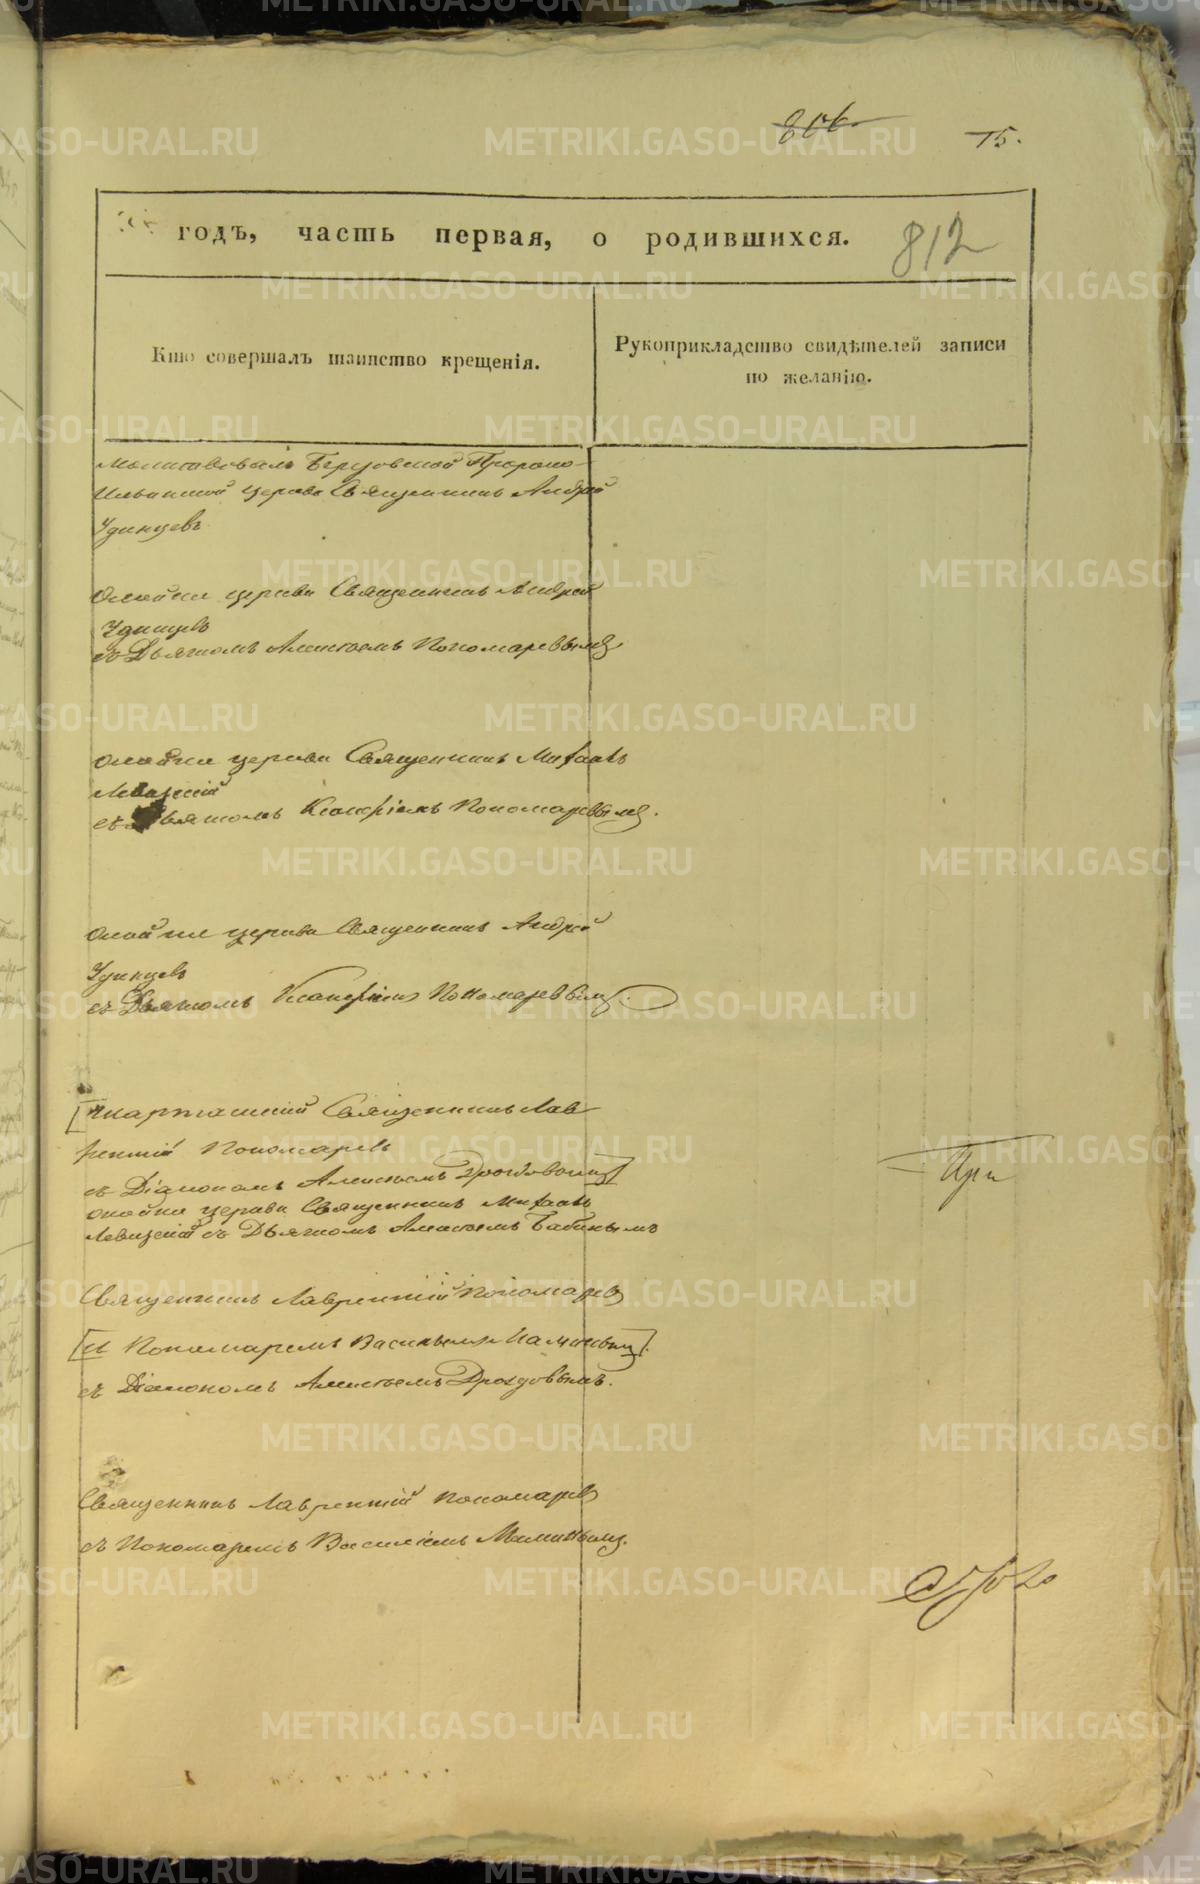 15.
годъ, часть первая, о родившихся.
812
Кто совершалъ таинство крещенія.
Рукоприкладство свидѣтелей записи
по желанію.
Молитвовалъ Березовской Пророко-
Ильинской церкви Священникъ Андрей
Удинцевъ
Оной же церкви Священникъ Андрей
Удинцевъ
съ Дьячкомъ Алексѣемъ Пономаревымъ
Оной же церкви Священникъ Михаилъ
Левицкій
съ Дьячкомъ Пономаревымъ.
Оной же церкви Священникъ Андрей
Удинцевъ
съ Дьячкомъ Пономаревымъ.
Священникъ Лав-
рентій Пономаревъ
съ Діакономъ Алексѣемъ Дроздовымъ
оной же церкви Священникъ Михаилъ
Левицкій съ Дьячкомъ Бабинымъ
Священникъ Лаврентій Пономаревъ
Пономаремъ
съ Діакономъ Алексѣемъ Дроздовымъ.
Священникъ Лаврентій Пономаревъ
съ Пономаремъ Василіемъ Маминымъ.
При
METRIKI.GASO-URAL.RU